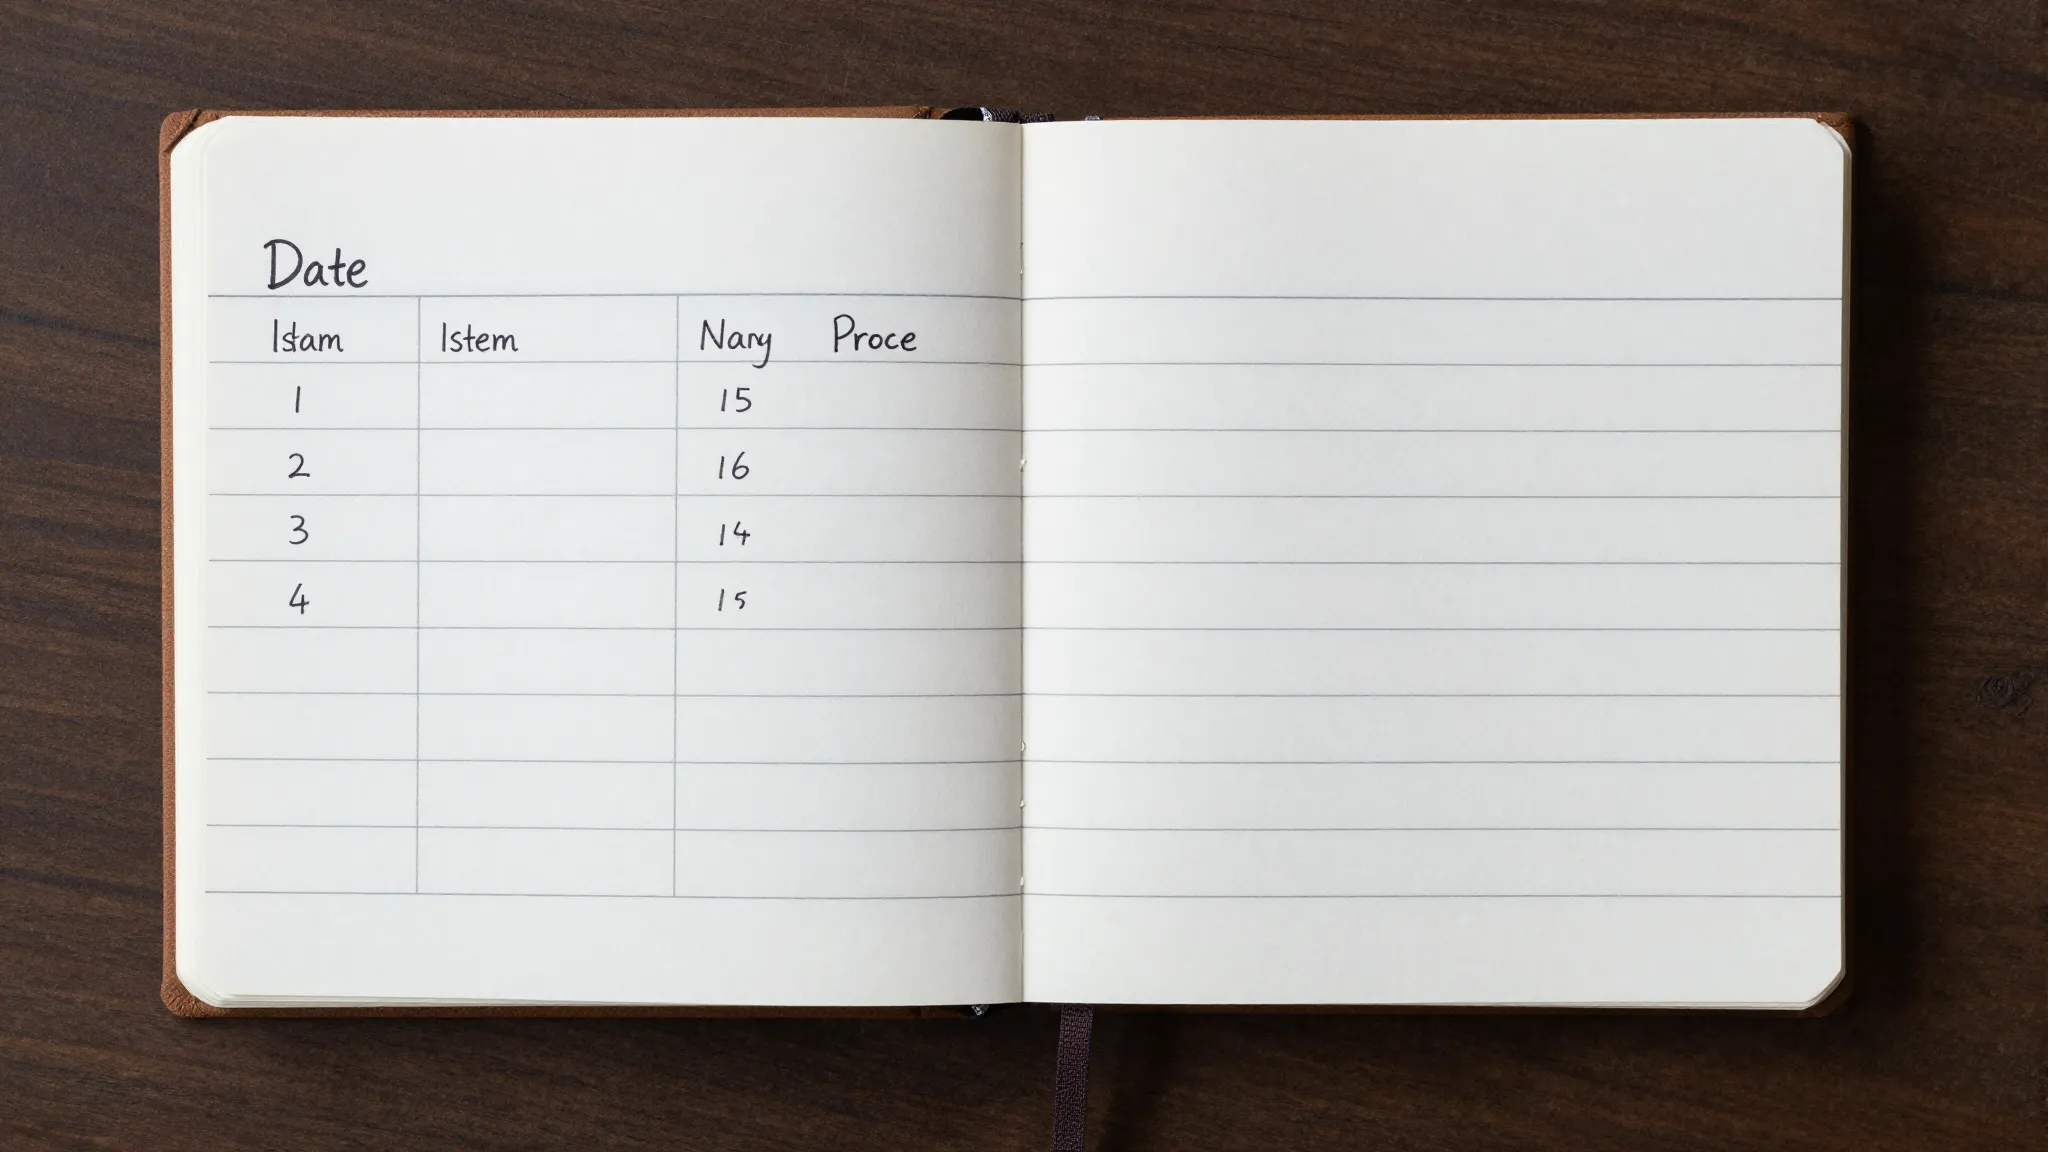 Date
Istam Istem Nany Proce
1 15
2 16
3 14
4 15